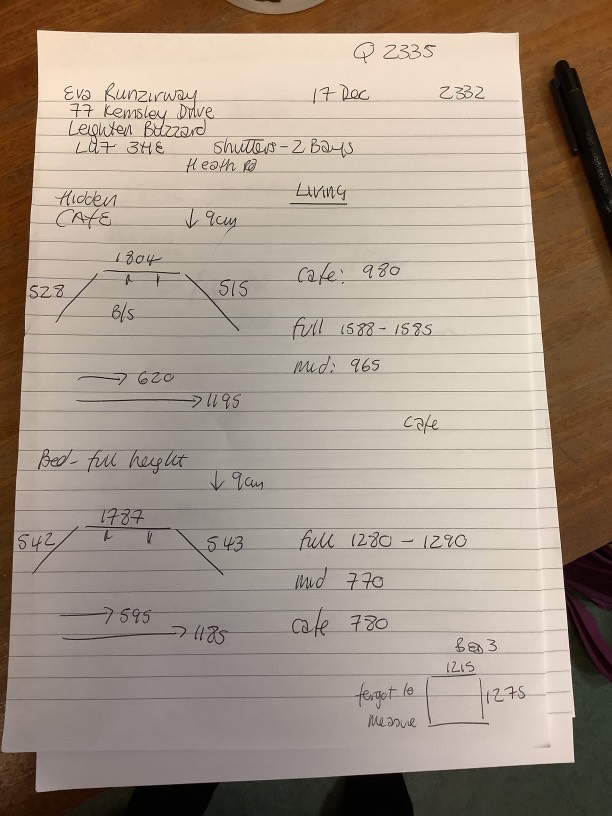 Q 2335
Eva Runzirway 17 Dec 2332
77 Kemsley Drive
Leighten Buzzard
LU7 3HE Shutters - 2 Bays
Heath Rd
Hidden Living
CAFE ↓ 9cm
1804
528 515 cafe: 980
B/S
full 1588 - 1585
mid: 965
→ 620
→ 1195
cafe
Bed - full height
↓ 9cm
1787
542 543 full 1280 - 1290
mid 770
→ 595
→ 1185 cafe 780
BED 3
1215
forgot to 1275
measure